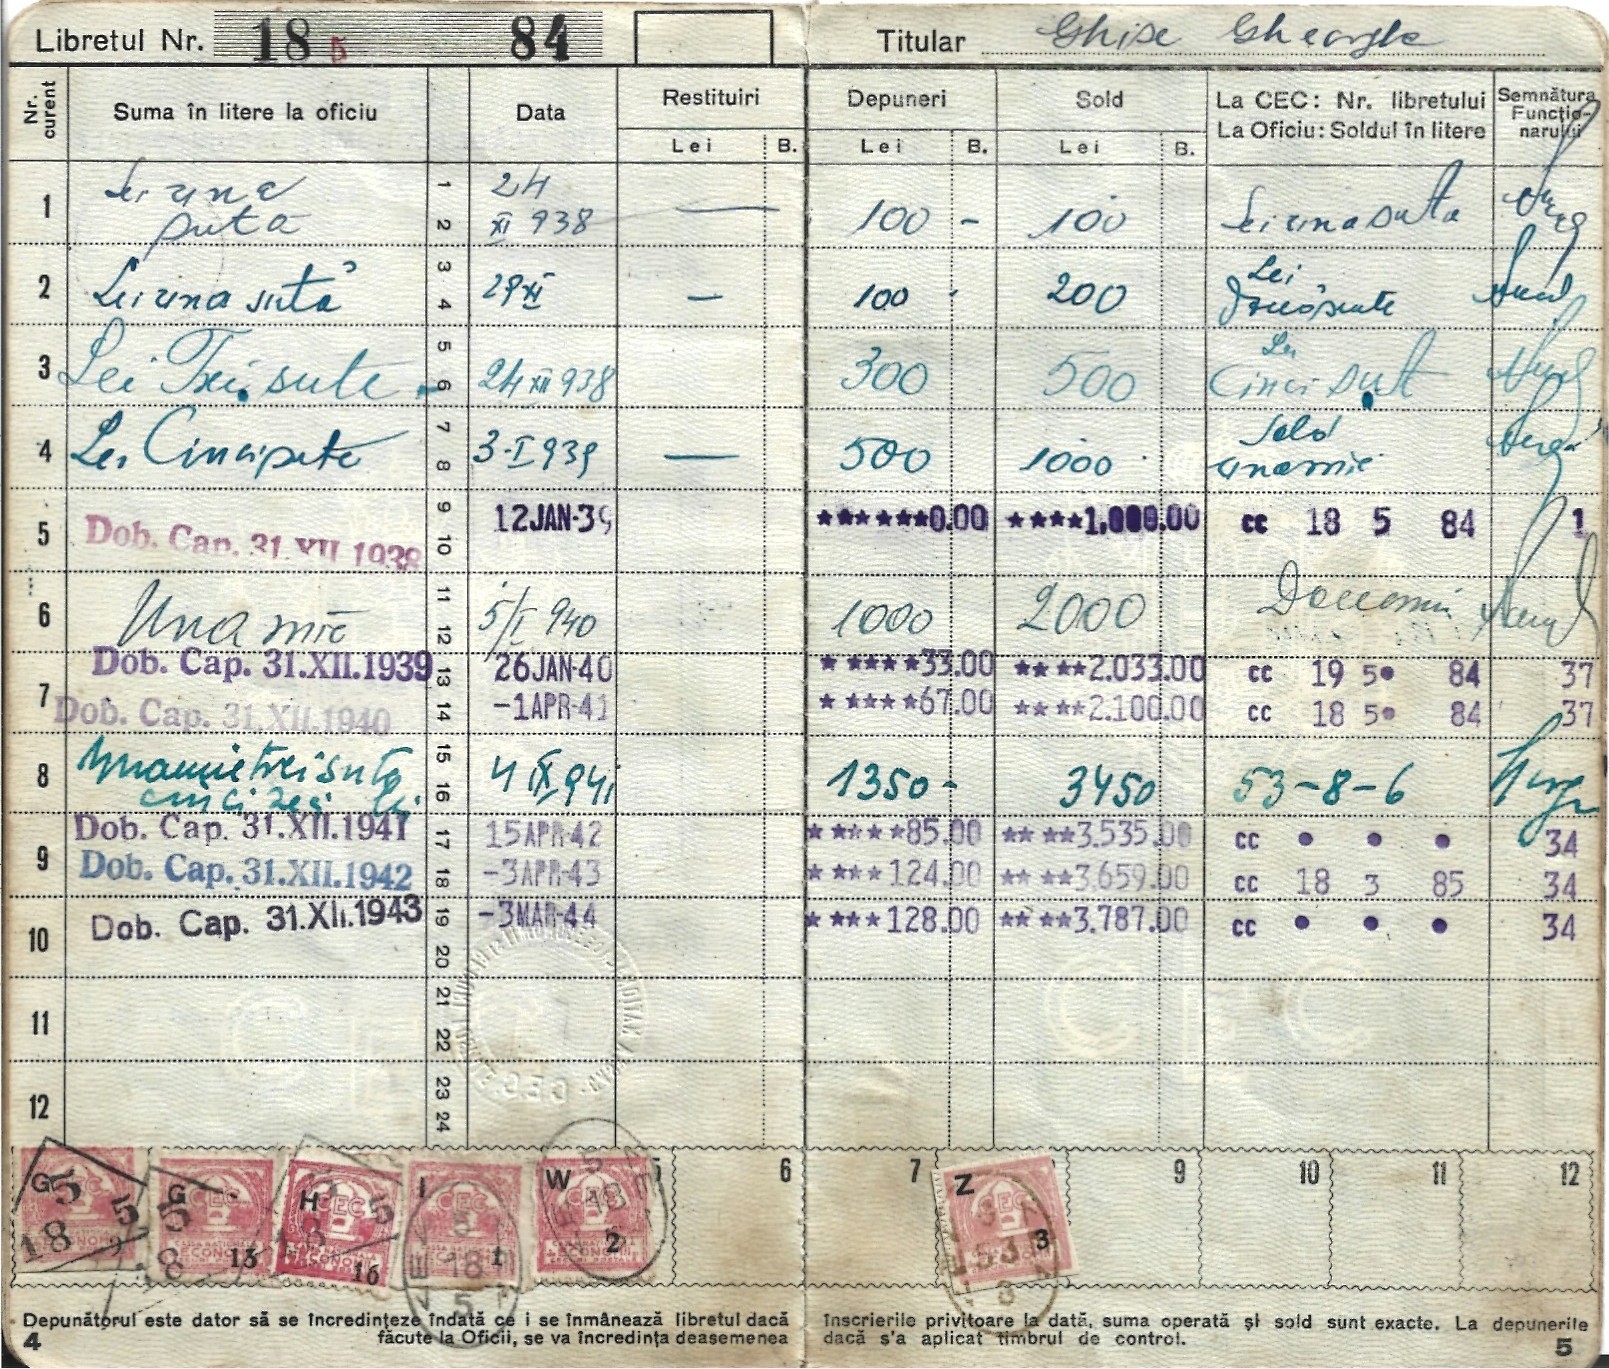 Libretul Nr. 18 5 84 Titular Ghise Gheorghe
Nr. curent Suma în litere la oficiu Data Restituiri Depuneri Sold La CEC: Nr. libretului Semnătura
La Oficiu: Soldul în litere Funcţio-
narului
Lei B. Lei B. Lei B.
1 Lei una suta 1 2 24 XI 938 — 100 - 100 Lei una suta
2 Lei una sută 3 4 29 XI — 100 - 200 Lei Două sute
3 Lei Trei sute 5 6 24 XII 938 300 500 Lei Cinci sut
4 Lei Cinci sute 7 8 3-I 939 — 500 1000 Sold una mie
5 Dob. Cap. 31.XII.1938 9 10 12 JAN-39 ******0.00 ****1.000.00 cc 18 5 84 1
6 Una mie 11 12 5/I 940 1000 2000 Doua mii
Dob. Cap. 31.XII.1939 13 26 JAN-40 *****33.00 ****2.033.00 cc 19 5• 84 37
7 Dob. Cap. 31.XII.1940 14 -1 APR-41 *****67.00 ****2.100.00 cc 18 5• 84 37
8 Una mie trei sute cinci zeci lei 15 16 4 IX 941 1350- 3450 53-8-6
Dob. Cap. 31.XII.1941 17 15 APR-42 *****85.00 ****3.535.00 cc • • • 34
9 Dob. Cap. 31.XII.1942 18 -3 APR-43 ****124.00 ****3.659.00 cc 18 3 85 34
10 Dob. Cap. 31.XII.1943 19 20 -3 MAR-44 ****128.00 ****3.787.00 cc • • • 34
11 21 22
12 23 24
G G H I W 6 7 Z 9 10 11 12
5 5 18 5 18 13 16 1 2 3
CEC CEC CEC CEC
Depunătorul este dator să se încredinţeze îndată ce i se înmânează libretul dacă înscrierile privitoare la dată, suma operată şi sold sunt exacte. La depunerile
făcute la Oficii, se va încredinţa deasemenea dacă s'a aplicat timbrul de control.
4 5